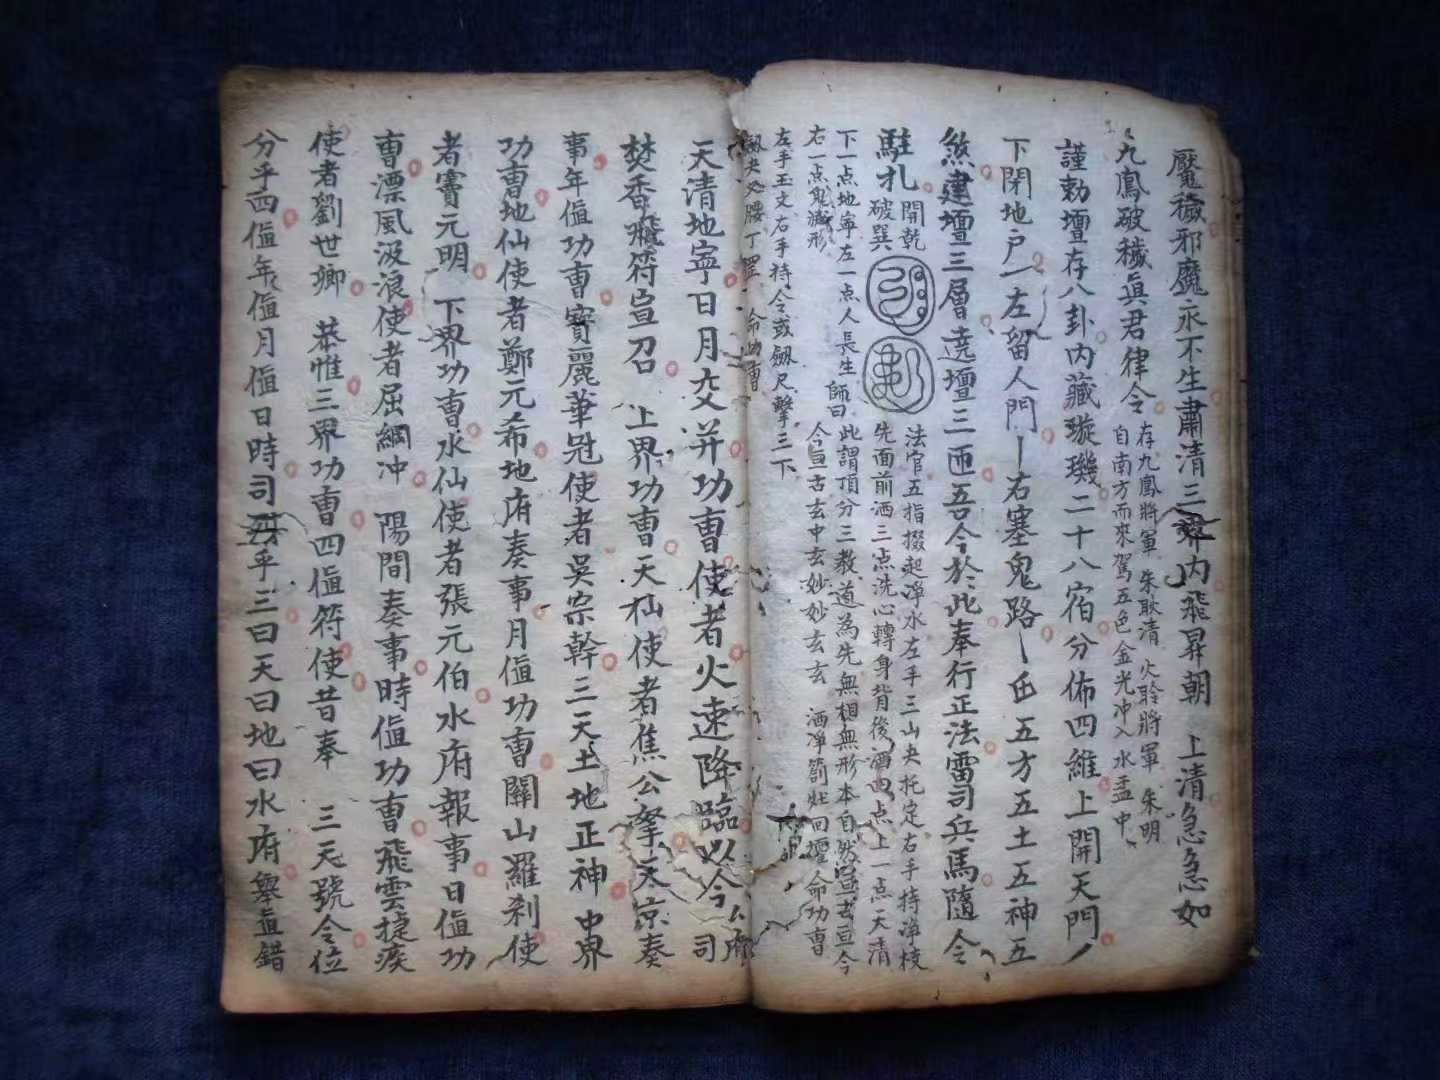 魘穢邪魔永不生肅清三界內飛昇朝　上清急急如
九鳳破穢眞君律令
存九鳳將軍　朱耿清　火聆將軍　朱明
自南方而來駕五色金光冲入水盂中
謹勅壇存八卦內藏璇璣二十八宿分佈四維上開天門
下閉地户　左留人門　右塞鬼路　五方五土五神五
煞建壇三層遶壇三匝吾今於此奉行正法雷司兵馬隨令
駐扎
開乾
破巽
法官五指掇起凈水左手三山夬托定右手持凈枝
先面前洒三点洗心轉身背後洒四点上一点天清
下一点地寧左一点人長生　師曰　此謂頂分三教道為先無相無形本自然
右一点鬼滅形
今亘古玄中玄妙妙玄玄　洒凈　回壇命功曹
左手玉文右手持令或劔尺擊三下
天清地寧日月交并功曹使者火速降臨以今　司
焚香飛符宣召　上界功曹天仙使者焦公孳天京奏
事年値功曹寶麗華冠使者吳宗幹三天土地正神　中界
功曹地仙使者鄭元希地府奏事月値功曹關山羅刹使
者竇元明　下界功曹水仙使者張元伯水府報事日値功
曹漂風波浪使者屈綱冲　陽間奏事時値功曹飛雲捷疾
使者劉世卿　恭惟三界功曹四値符使昔奉　三天號令位
分乎四値年値月値日時司乎三曰天曰地曰水府舉直錯